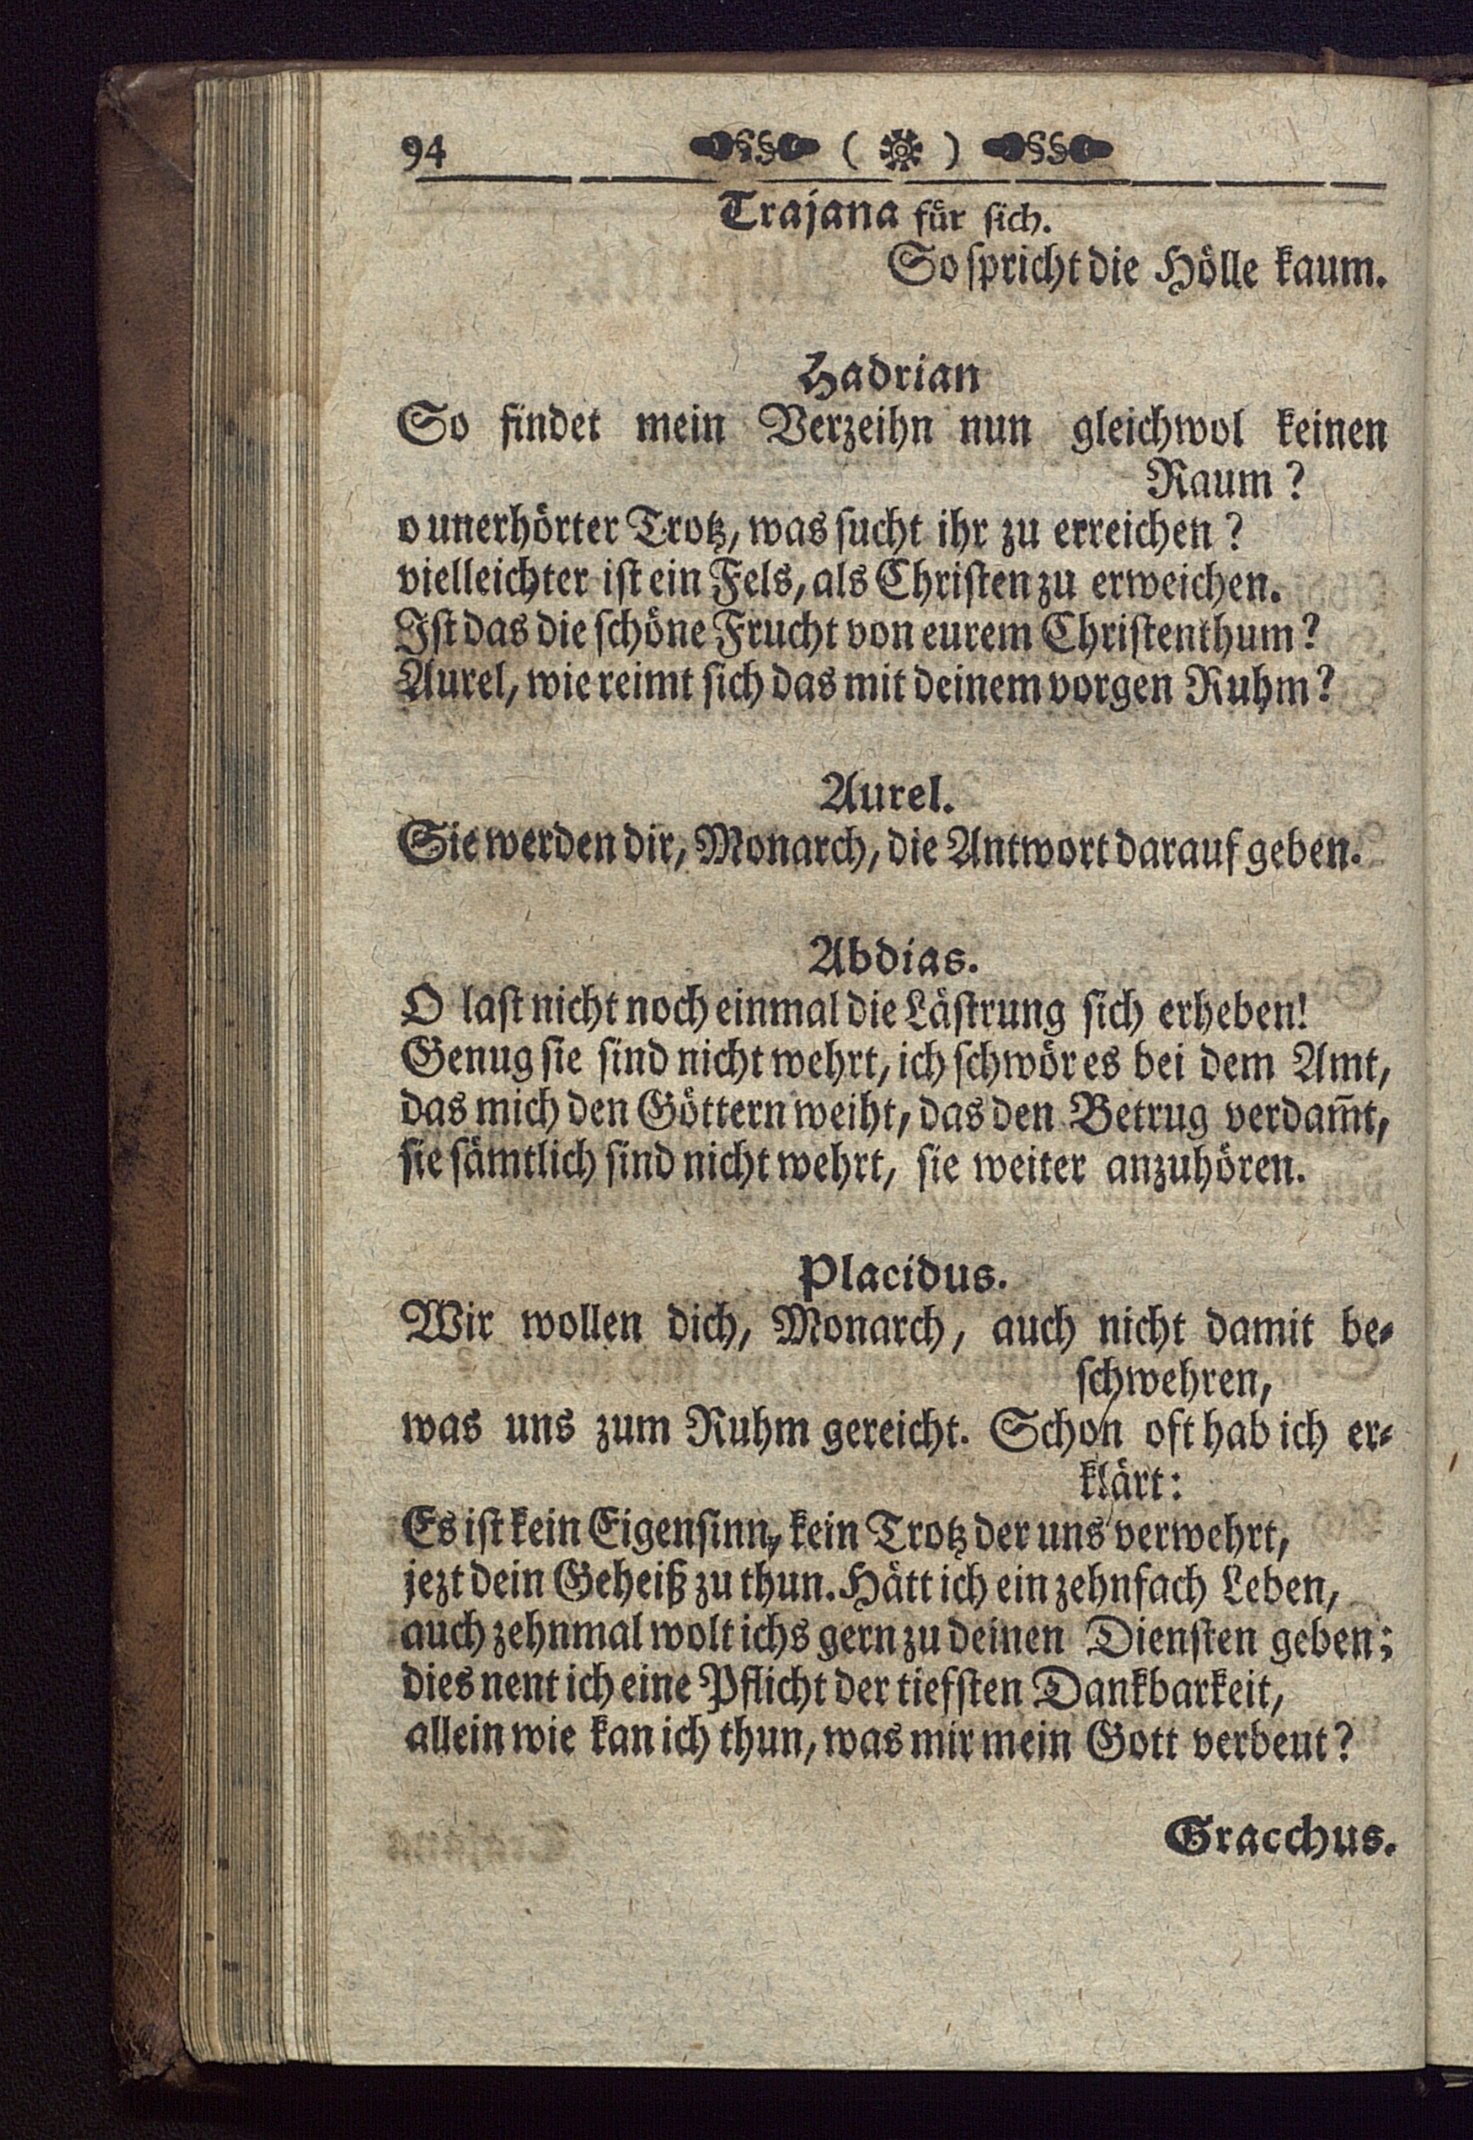 94 ( )
Trajana für sich.
So spricht die Hölle kaum.
Hadrian
So findet mein Verzeihn nun gleichwol keinen
Raum?
o unerhörter Trotz, was sucht ihr zu erreichen?
vielleichter ist ein Fels, als Christen zu erweichen.
Ist das die schöne Frucht von eurem Christenthum?
Aurel, wie reimt sich das mit deinem vorgen Ruhm?
Aurel.
Sie werden dir, Monarch, die Antwort darauf geben.
Abdias.
O last nicht noch einmal die Lästrung sich erheben!
Genug sie sind nicht wehrt, ich schwör es bei dem Amt,
das mich den Göttern weiht, das den Betrug verdam̅t,
sie sämtlich sind nicht wehrt, sie weiter anzuhören.
Placidus.
Wir wollen dich, Monarch, auch nicht damit be-
schwehren,
was uns zum Ruhm gereicht. Schon oft hab ich er-
klärt:
Es ist kein Eigensinn, kein Trotz der uns verwehrt,
jezt dein Geheiß zu thun. Hätt ich ein zehnfach Leben,
auch zehnmal wolt ichs gern zu deinen Diensten geben;
dies nent ich eine Pflicht der tiefsten Dankbarkeit,
allein wie kan ich thun, was mir mein Gott verbeut?
Gracchus.